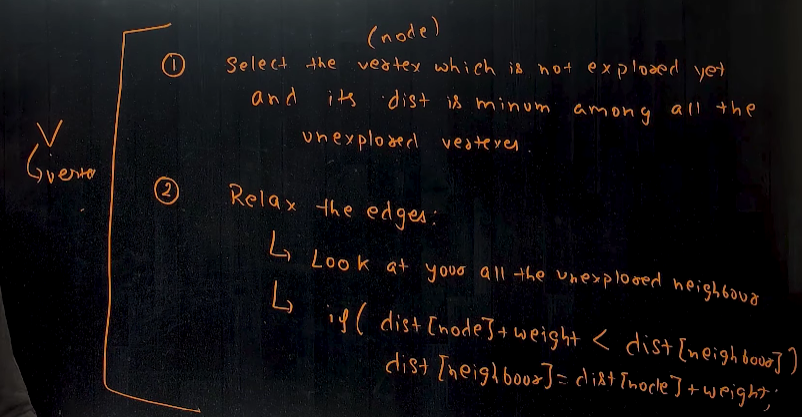 (node)
① Select the vertex which is not explored yet
and its dist is minum among all the
unexplored vertexes.
V
↳ vertex
② Relax the edges:
↳ Look at your all the unexplored neighbour
↳ if( dist[node]+weight < dist[neighbour])
dist[neighbour]=dist[node]+weight;